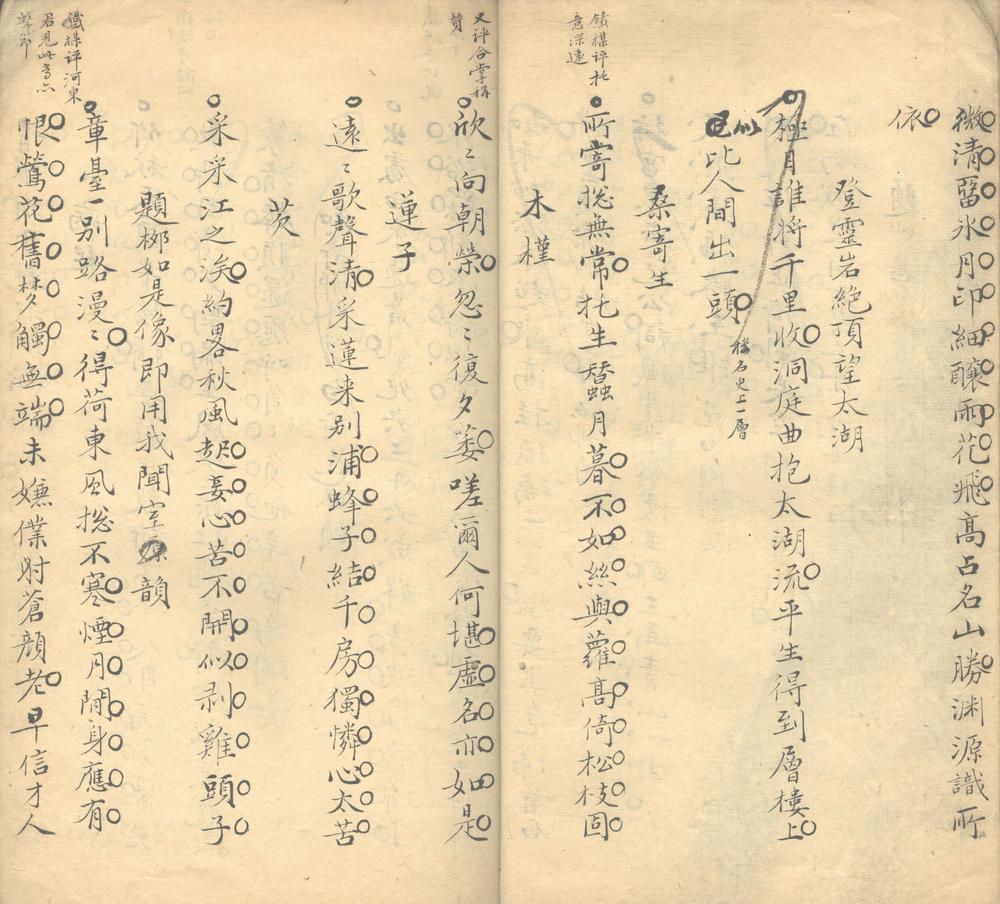 微清罶氷月印細釀雨花飛高占名山勝渊源識所
依
登靈岩絶頂望太湖
極目誰将千里收洞庭曲抱太湖流平生得到層樓上
已似比人間出一頭
樓名更上一層
桑寄生
鐵楳評托
意深遠
所寄捴無常托生蠶月暮不如絲與蘿髙倚松枝固
木槿
又評合掌稱
賛
欣〻向朝榮忽〻復夕萎嗟爾人何堪虛名亦如是
蓮子
遠〻歌聲清采蓮来别浦蜂子結千房獨憐心太苦
茨
采采江之涘約畧秋風起妾心苦不開似剥雞頭子
題栁如是像即用我聞室韻
鐵楳評河東
君見此當亦
擊節
章臺一别路漫〻得荷東風捴不寒煙月間身應有
恨鶯花舊梦觸無端未嫌僕射蒼顔老早信才人